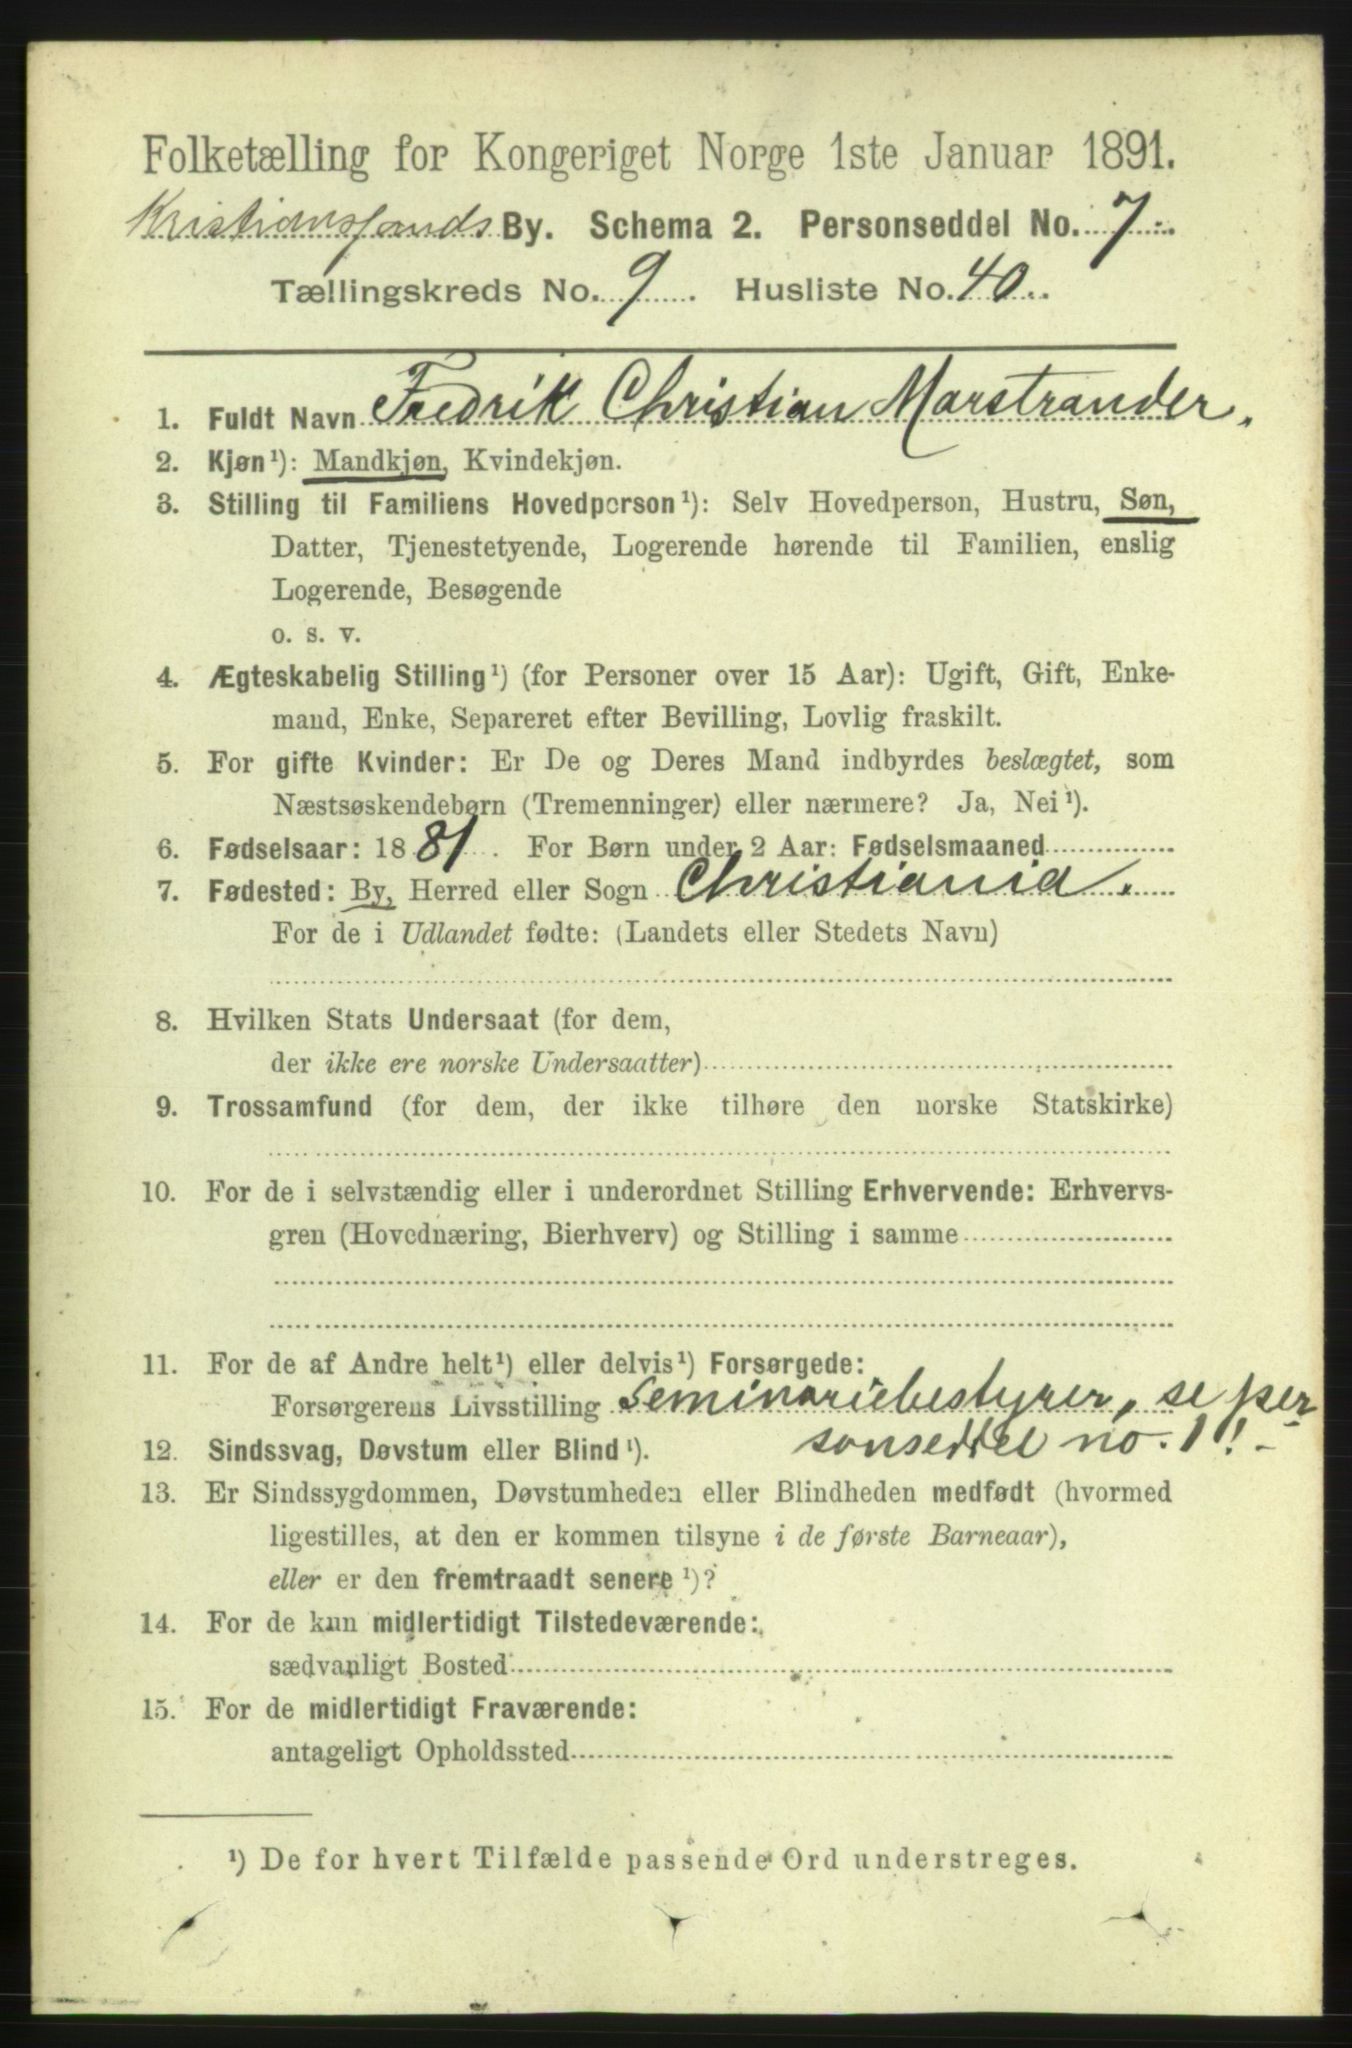 Folketælling for Kongeriget Norge 1ste Januar 1891.
Kristianssands By. Schema 2. Personseddel No. 7
Tællingskreds No. 9. Husliste No. 40.
1. Fuldt Navn Fredrik Christian Marstrander.
2. Kjøn¹): Mandkjøn, Kvindekjøn.
3. Stilling til Familiens Hovedperson¹): Selv Hovedperson, Hustru, Søn,
Datter, Tjenestetyende, Logerende hørende til Familien, enslig
Logerende, Besøgende
o. s. v.
4. Ægteskabelig Stilling¹) (for Personer over 15 Aar): Ugift, Gift, Enke-
mand, Enke, Separeret efter Bevilling, Lovlig fraskilt.
5. For gifte Kvinder: Er De og Deres Mand indbyrdes beslægtet, som
Næstsøskendebørn (Tremenninger) eller nærmere? Ja, Nei¹).
6. Fødselsaar: 1881. For Børn under 2 Aar: Fødselsmaaned
7. Fødested: By, Herred eller Sogn Christiania.
For de i Udlandet fødte: (Landets eller Stedets Navn)
8. Hvilken Stats Undersaat (for dem,
der ikke ere norske Undersaatter)
9. Trossamfund (for dem, der ikke tilhøre den norske Statskirke)
10. For de i selvstændig eller i underordnet Stilling Erhvervende: Erhvervs-
gren (Hovednæring, Bierhverv) og Stilling i samme
11. For de af Andre helt¹) eller delvis¹) Forsørgede:
Forsørgerens Livsstilling Seminariebestyrer, se per
sonseddel no. 1!
12. Sindssvag, Døvstum eller Blind¹).
13. Er Sindssygdommen, Døvstumheden eller Blindheden medfødt (hvormed
ligestilles, at den er kommen tilsyne i de første Barneaar),
eller er den fremtraadt senere¹)?
14. For de kun midlertidigt Tilstedeværende:
sædvanligt Bosted
15. For de midlertidigt Fraværende:
antageligt Opholdssted
¹) De for hvert Tilfælde passende Ord understreges.